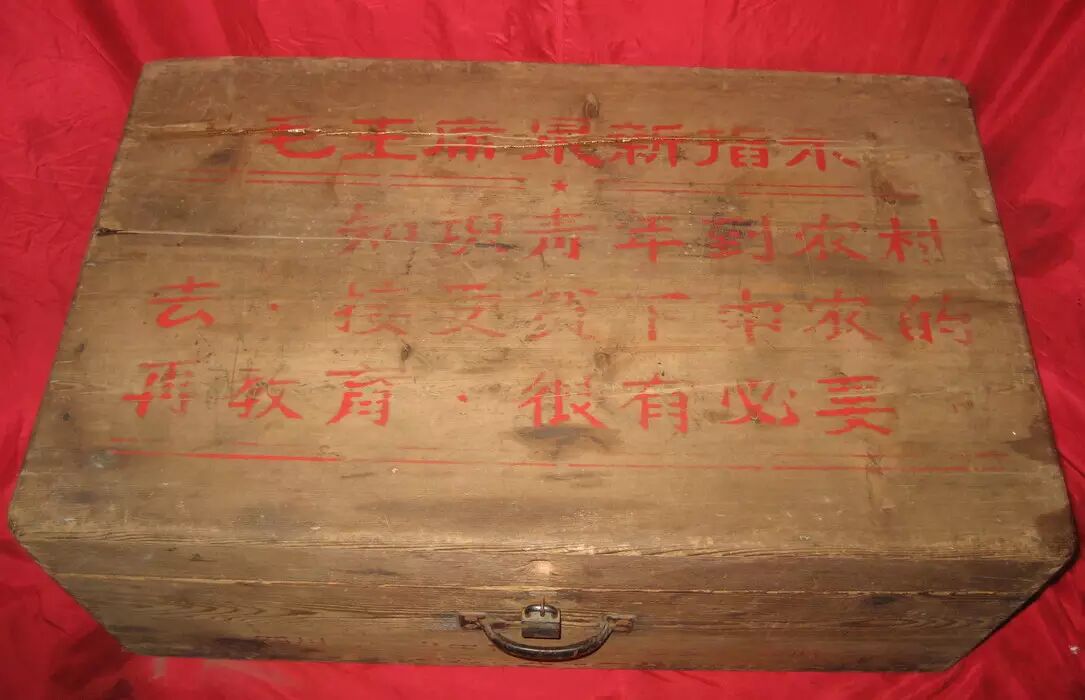 毛主席最新指示
知识青年到农村
去·接受贫下中农的
再教育·很有必要